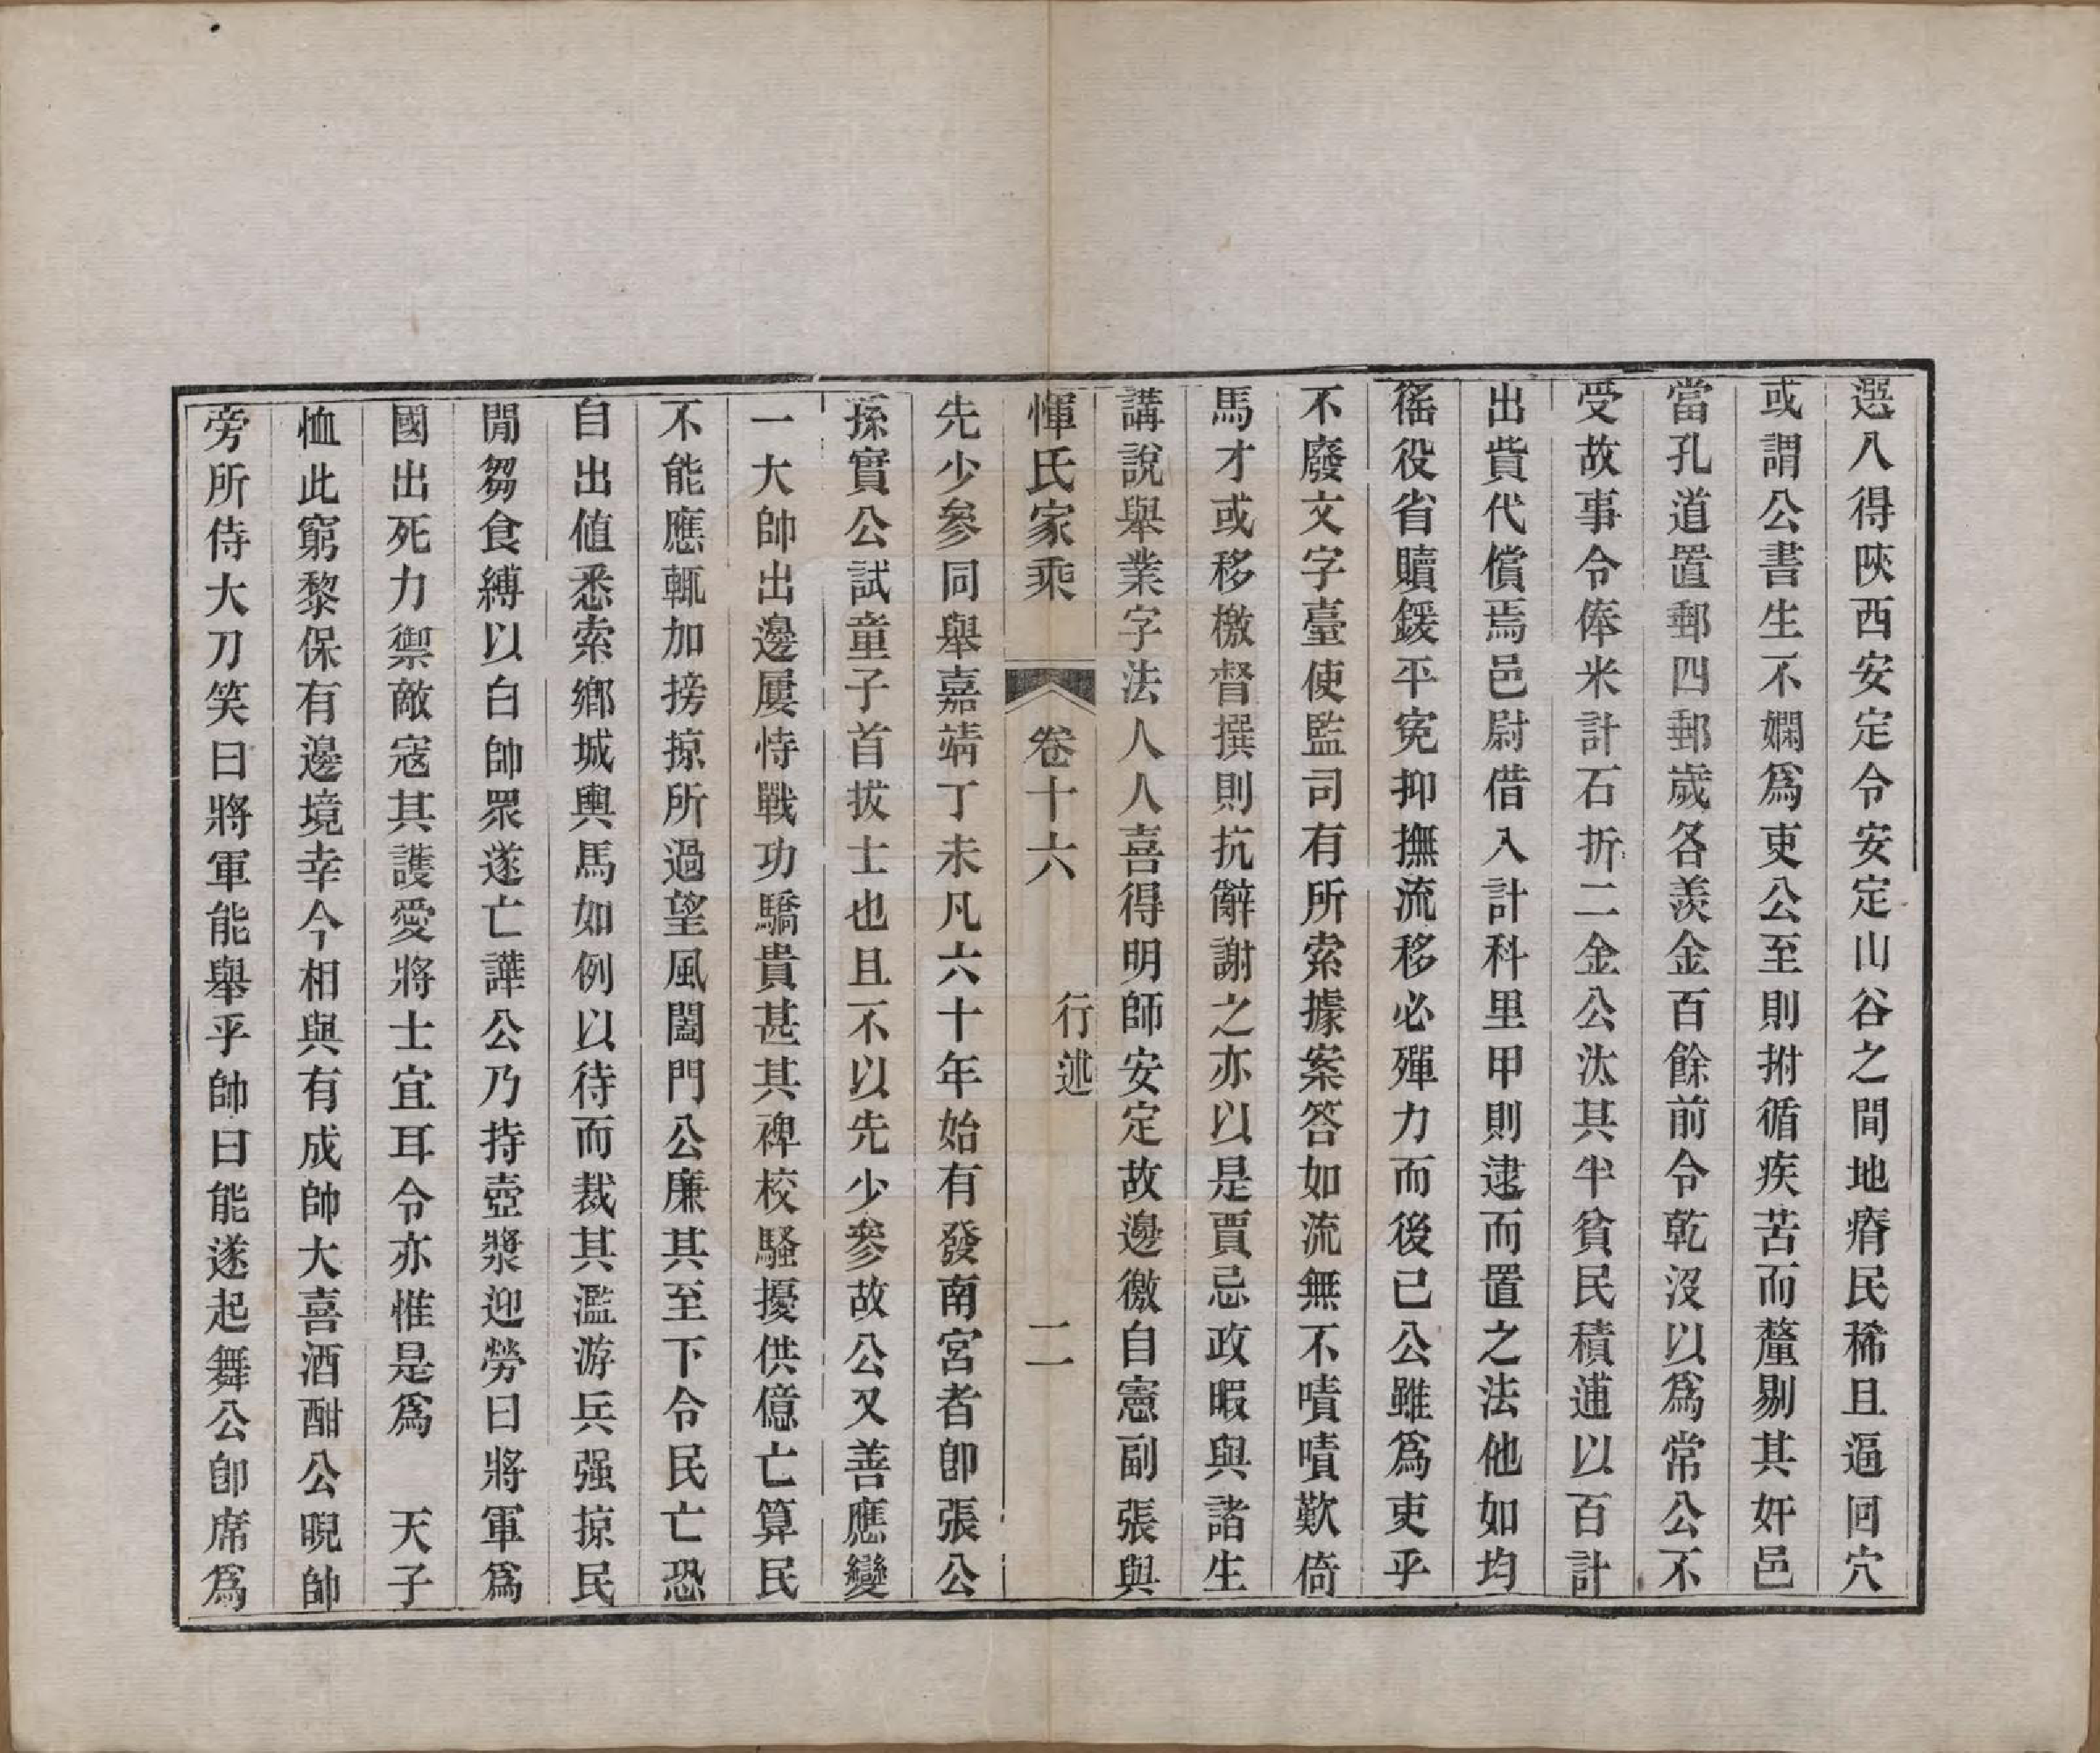 選人得陝西安定令安定山谷之間地瘠民稀且逼回穴
或謂公書生不嫻爲吏公至則拊循疾苦而釐剔其奸邑
當孔道置郵四郵歲各羨金百餘前令乾沒以爲常公不
受故事令俸米計石折二金公汰其半貧民積逋以百計
出貲代償焉邑尉借入計科里甲則逮而置之法他如均
徭役省贖鍰平寃抑撫流移必殫力而後已公雖爲吏乎
不廢文字臺使監司有所索據案答如流無不嘖嘖歎倚
馬才或移檄督撰則抗辭謝之亦以是賈忌政暇與諸生
講說舉業字法人人喜得明師安定故邊徼自憲副張與
惲氏家乘 卷十六 行述 二
先少參同舉嘉靖丁未凡六十年始有發南宮者卽張公
孫實公試童子首拔士也且不以先少參故公又善應變
一大帥出邊屢恃戰功驕貴甚其裨校騷擾供億亡算民
不能應輒加搒掠所過望風闔門公廉其至下令民亡恐
自出値悉索鄉城輿馬如例以待而裁其濫游兵强掠民
閒芻食縛以白帥眾遂亡譁公乃持壺漿迎勞曰將軍爲
國出死力禦敵寇其護愛將士宜耳令亦惟是爲 天子
恤此窮黎保有邊境幸今相與有成帥大喜酒酣公睨帥
旁所侍大刀笑曰將軍能舉乎帥曰能遂起舞公卽席爲